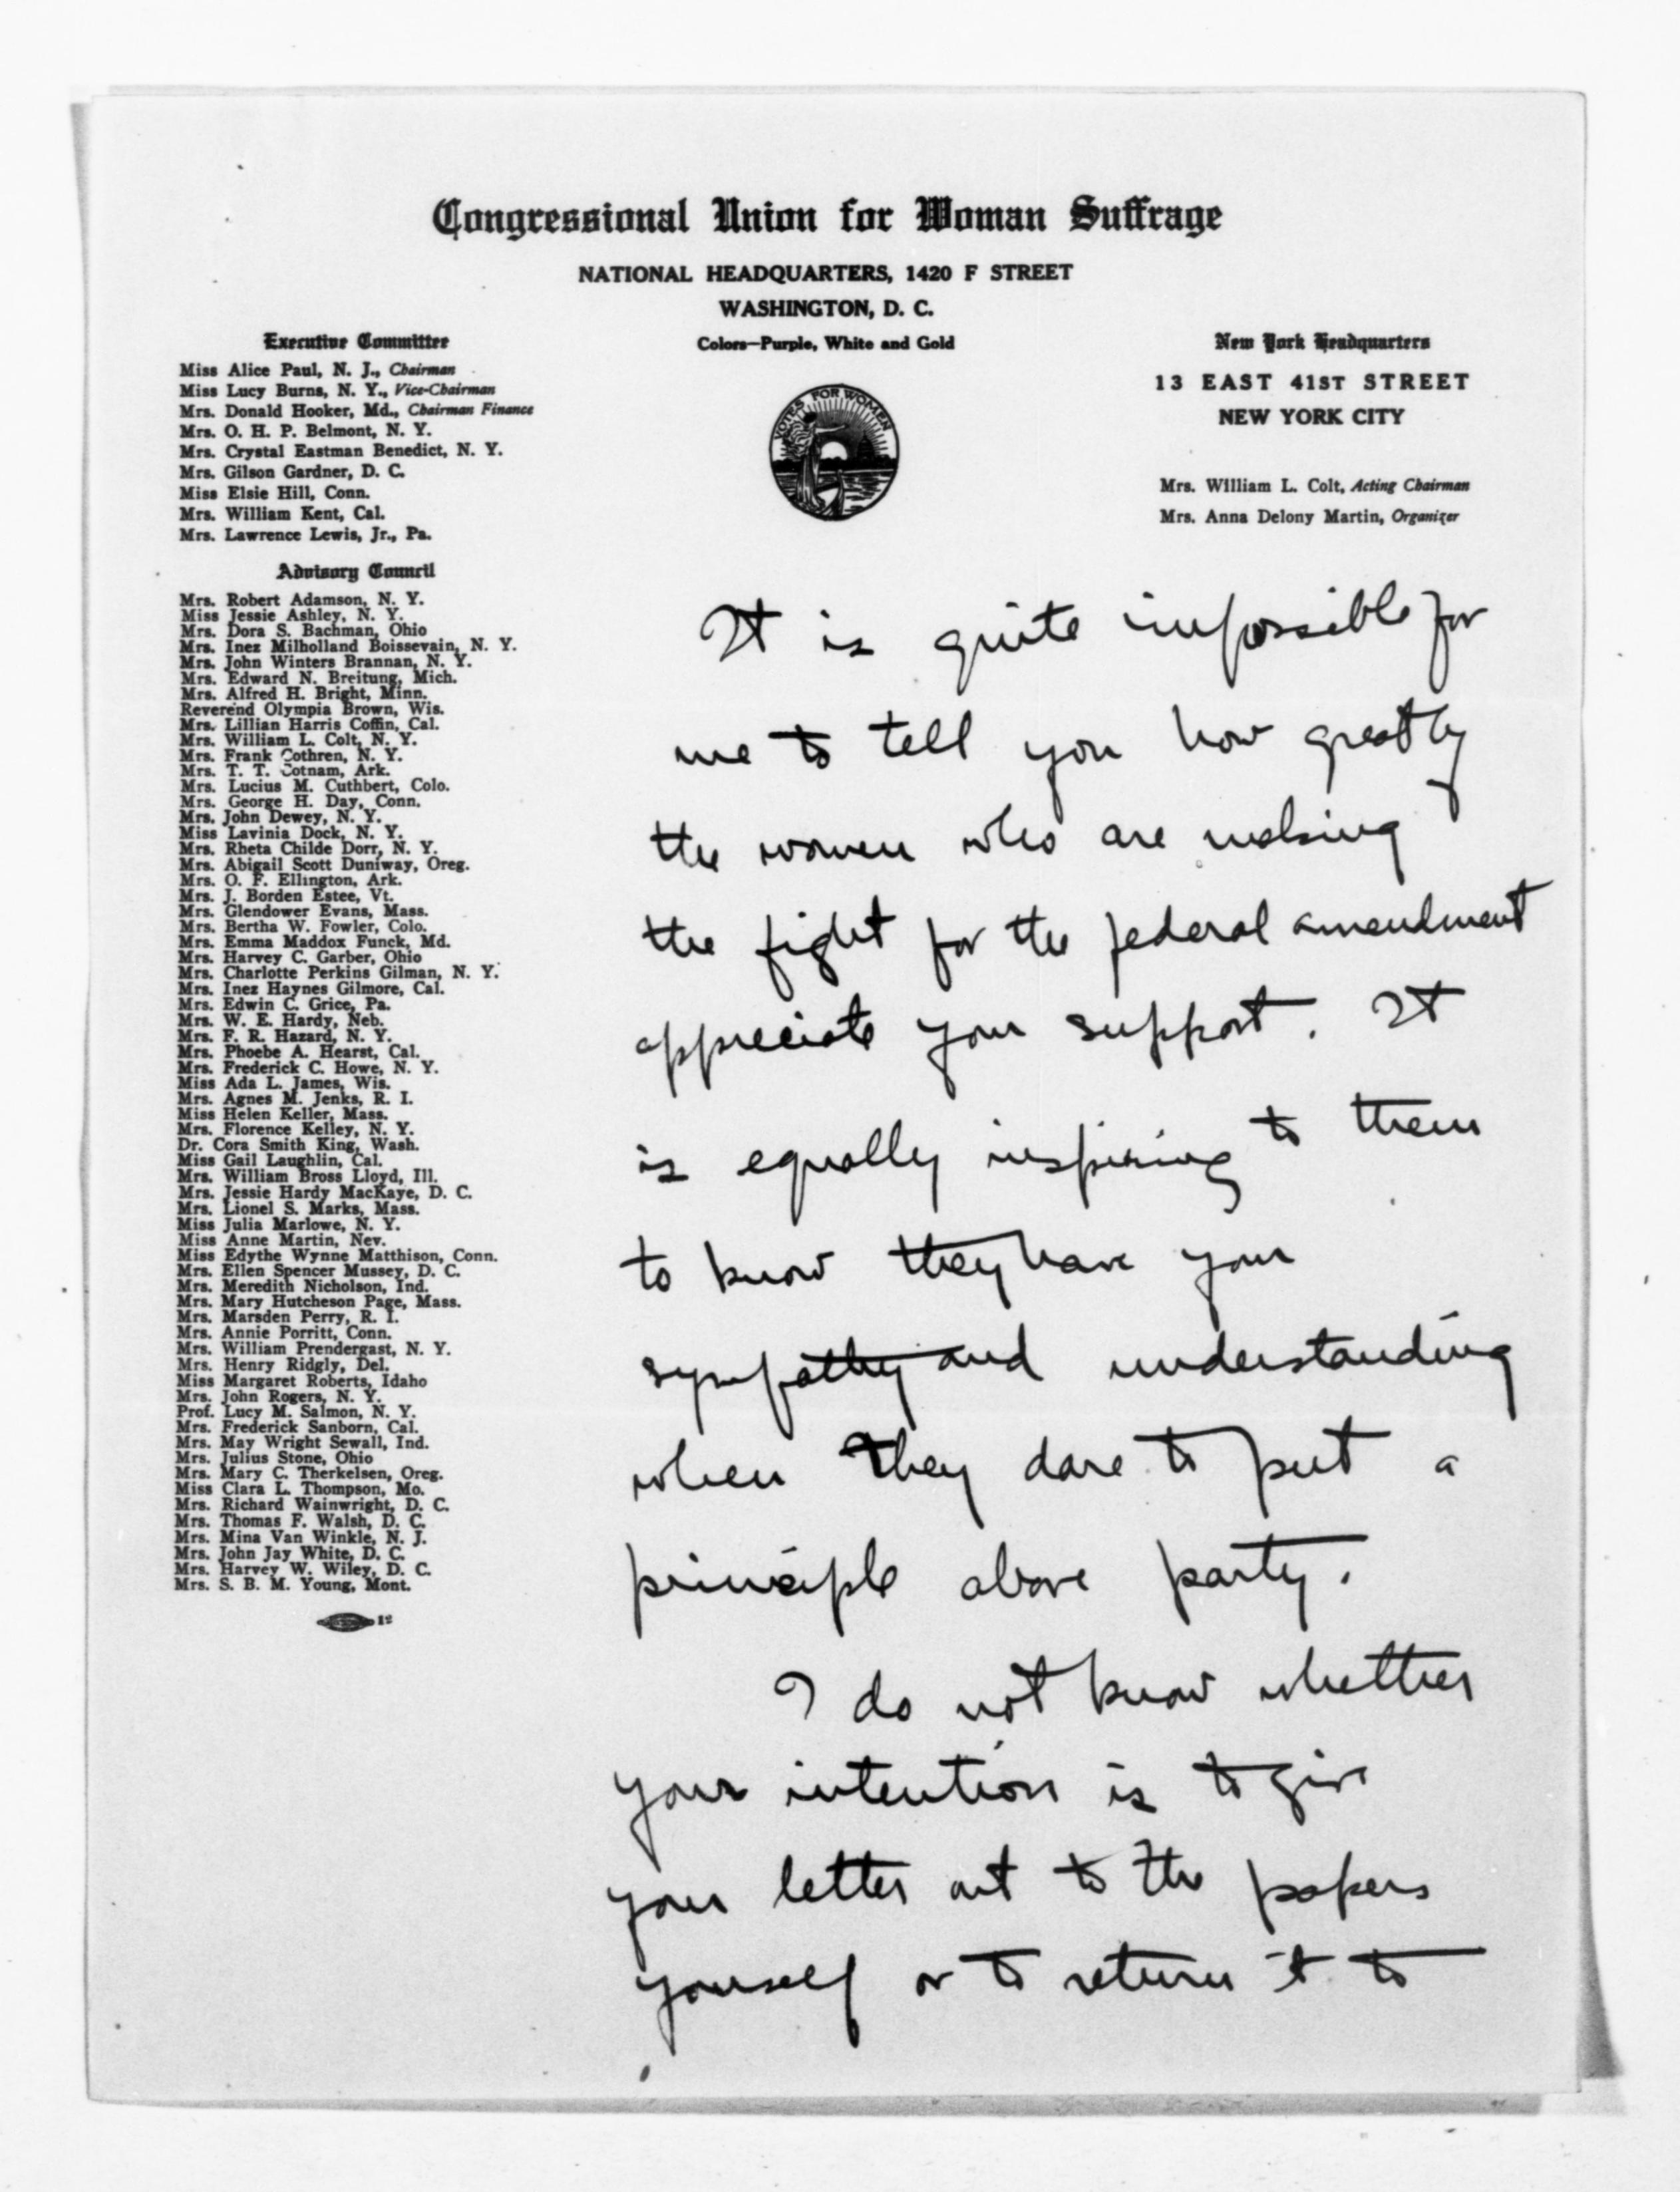 Congressional Union for Woman Suffrage
NATIONAL HEADQUARTERS, 1420 F STREET
WASHINGTON, D. C.
Colors—Purple, White and Gold
VOTES FOR WOMEN
Executive Committee
Miss Alice Paul, N. J., Chairman
Miss Lucy Burns, N. Y., Vice-Chairman
Mrs. Donald Hooker, Md., Chairman Finance
Mrs. O. H. P. Belmont, N. Y.
Mrs. Crystal Eastman Benedict, N. Y.
Mrs. Gilson Gardner, D. C.
Miss Elsie Hill, Conn.
Mrs. William Kent, Cal.
Mrs. Lawrence Lewis, Jr., Pa.
Advisory Council
Mrs. Robert Adamson, N. Y.
Miss Jessie Ashley, N. Y.
Mrs. Dora S. Bachman, Ohio
Mrs. Inez Milholland Boissevain, N. Y.
Mrs. John Winters Brannan, N. Y.
Mrs. Edward N. Breitung, Mich.
Mrs. Alfred H. Bright, Minn.
Reverend Olympia Brown, Wis.
Mrs. Lillian Harris Coffin, Cal.
Mrs. William L. Colt, N. Y.
Mrs. Frank Cothren, N. Y.
Mrs. T. T. Cotnam, Ark.
Mrs. Lucius M. Cuthbert, Colo.
Mrs. George H. Day, Conn.
Mrs. John Dewey, N. Y.
Miss Lavinia Dock, N. Y.
Mrs. Rheta Childe Dorr, N. Y.
Mrs. Abigail Scott Duniway, Oreg.
Mrs. O. F. Ellington, Ark.
Mrs. J. Borden Estee, Vt.
Mrs. Glendower Evans, Mass.
Mrs. Bertha W. Fowler, Colo.
Mrs. Emma Maddox Funck, Md.
Mrs. Harvey C. Garber, Ohio
Mrs. Charlotte Perkins Gilman, N. Y.
Mrs. Inez Haynes Gilmore, Cal.
Mrs. Edwin C. Grice, Pa.
Mrs. W. E. Hardy, Neb.
Mrs. F. R. Hazard, N. Y.
Mrs. Phoebe A. Hearst, Cal.
Mrs. Frederick C. Howe, N. Y.
Miss Ada L. James, Wis.
Mrs. Agnes M. Jenks, R. I.
Miss Helen Keller, Mass.
Mrs. Florence Kelley, N. Y.
Dr. Cora Smith King, Wash.
Miss Gail Laughlin, Cal.
Mrs. William Bross Lloyd, Ill.
Mrs. Jessie Hardy MacKaye, D. C.
Mrs. Lionel S. Marks, Mass.
Miss Julia Marlowe, N. Y.
Miss Anne Martin, Nev.
Miss Edythe Wynne Matthison, Conn.
Mrs. Ellen Spencer Mussey, D. C.
Mrs. Meredith Nicholson, Ind.
Mrs. Mary Hutcheson Page, Mass.
Mrs. Marsden Perry, R. I.
Mrs. Annie Porritt, Conn.
Mrs. William Prendergast, N. Y.
Mrs. Henry Ridgly, Del.
Miss Margaret Roberts, Idaho
Mrs. John Rogers, N. Y.
Prof. Lucy M. Salmon, N. Y.
Mrs. Frederick Sanborn, Cal.
Mrs. May Wright Sewall, Ind.
Mrs. Julius Stone, Ohio
Mrs. Mary C. Therkelsen, Oreg.
Miss Clara L. Thompson, Mo.
Mrs. Richard Wainwright, D. C.
Mrs. Thomas F. Walsh, D. C.
Mrs. Mina Van Winkle, N. J.
Mrs. John Jay White, D. C.
Mrs. Harvey W. Wiley, D. C.
Mrs. S. B. M. Young, Mont.
12
New York Headquarters
13 EAST 41ST STREET
NEW YORK CITY
Mrs. William L. Colt, Acting Chairman
Mrs. Anna Delony Martin, Organizer
It is quite impossible for
me to tell you how greatly
the women who are making
the fight for the federal amendment
appreciate your support. It
is equally inspiring to them
to know they have your
sympathy and understanding
when they dare to put a
principle above party.
I do not know whether
your intention is to give
your letter out to the papers
yourself or to return it to